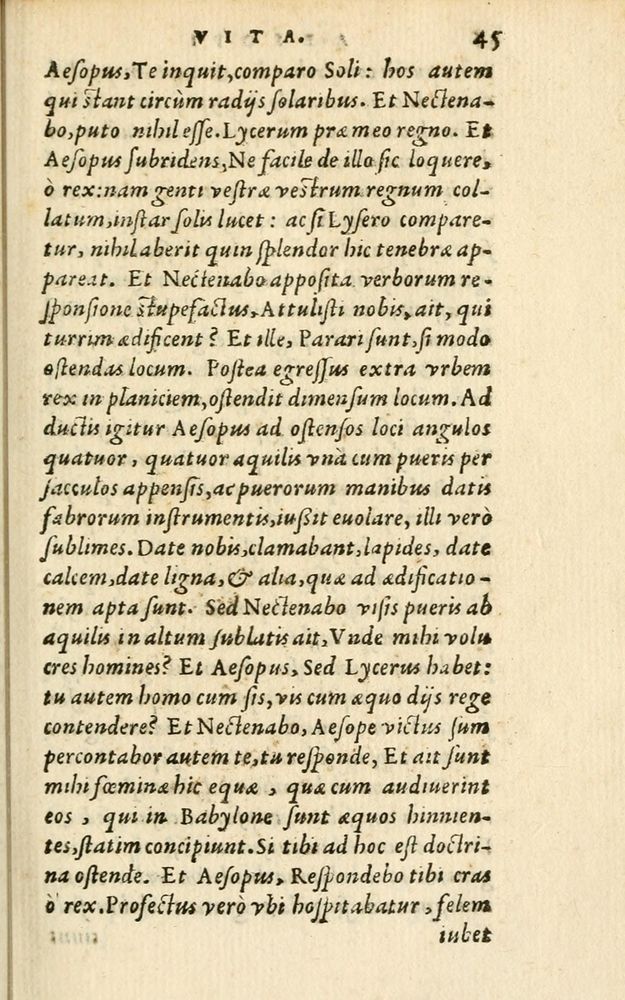 VITA. 45
Aeſopus, Te inquit, comparo Soli: hos autem
qui ſtant circùm radijs ſolaribus. Et Nectena-
bo, puto nihil eſſe. Lycerum præ meo regno. Et
Aeſopus ſubridens, Ne facile de illo ſic loquere,
ò rex: nam genti veſtræ veſtrum regnum col-
latum, inſtar ſolis lucet: ac ſi Lyſero compare-
tur, nihil aberit quin ſplendor hic tenebræ ap-
pareat. Et Nectenabo appoſita verborum re-
ſponſione ſtupefactus, Attuliſti nobis, ait, qui
turrim ædificent? Et ille, Parari ſunt, ſi modo
oſtendas locum. Poſtea egreſſus extra vrbem
rex in planiciem, oſtendit dimenſum locum. Ad
ductis igitur Aeſopus ad oſtenſos loci angulos
quatuor, quatuor aquilis vnà cum pueris per
ſacculos appenſis, ac puerorum manibus datis
fabrorum inſtrumentis, iuſſit euolare, illi verò
ſublimes. Date nobis, clamabant, lapides, date
calcem, date ligna, & alia, quæ ad ædificatio-
nem apta ſunt. Sed Nectenabo viſis pueris ab
aquilis in altum ſublatis ait, Vnde mihi volu
cres homines? Et Aeſopus, Sed Lycerus habet:
tu autem homo cum ſis, vis cum æquo dijs rege
contendere? Et Nectenabo, Aeſope victus ſum
percontabor autem te, tu reſponde, Et ait ſunt
mihi fœminæ hic equæ, quæ cum audiuerint
eos, qui in Babylone ſunt æquos hinnien-
tes, ſtatim concipiunt. Si tibi ad hoc eſt doctri-
na oſtende. Et Aeſopus, Reſpondebo tibi cras
ò rex. Profectus verò vbi hoſpitabatur, felem
iubet